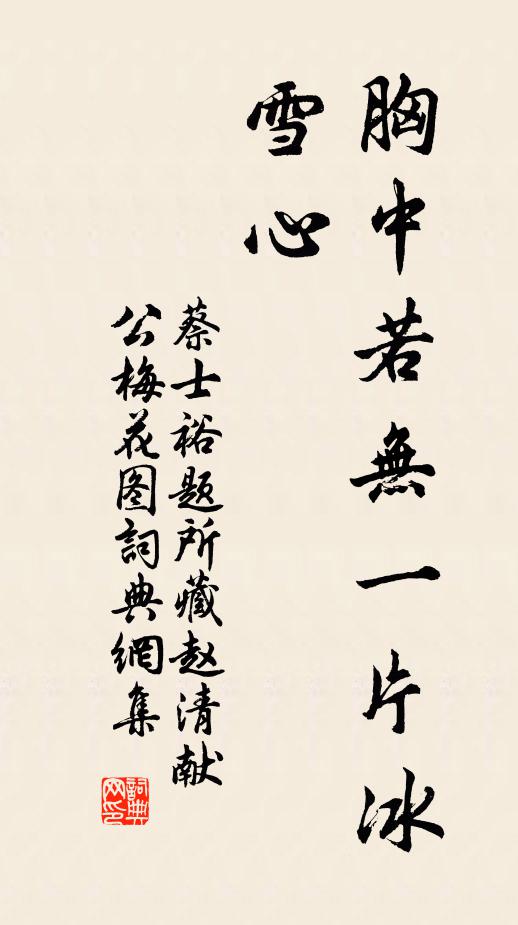 胸中若無一片冰
雪心
蔡士裕题所藏赵清献
公梅花图詞典網集
詞典网印